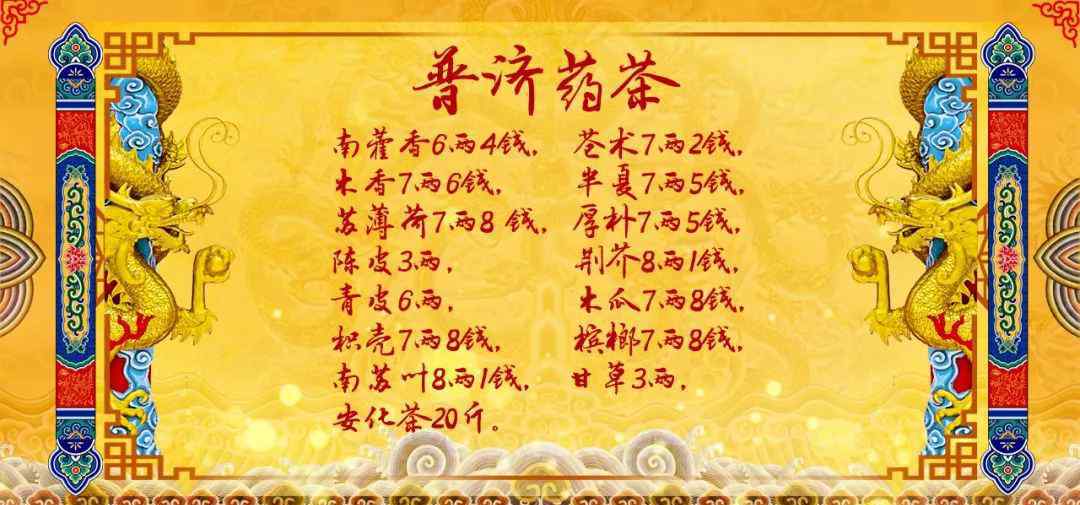 普济药茶
南藿香6两4钱， 苍术7两2钱，
木香7两6钱， 半夏7两5钱，
苏薄荷7两8钱， 厚朴7两5钱，
陈皮3两， 荆芥8两1钱，
青皮6两， 木瓜7两8钱，
枳壳7两8钱， 槟榔7两8钱，
南苏叶8两1钱， 甘草3两，
安化茶20斤。